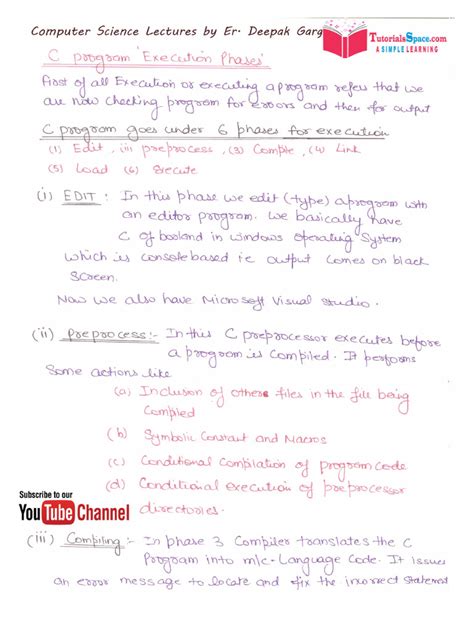 Computer Science Lectures by Er. Deepak Garg
TutorialsSpace.com
A SIMPLE LEARNING
C program 'Execution Phases'
First of all Execution or executing a program refers that we
are now checking program for errors and then for output
C program goes under 6 phases for execution
(1) Edit, (ii) preprocess, (3) Compile, (4) Link
(5) Load (6) Execute
(i) EDIT : In this phase we edit (type) a program with
an editor program. We basically have
C of borland in windows Operating System
which is console based i.e output comes on black
screen.
Now we also have Microsoft Visual studio.
(ii) Preprocess :- In this C preprocessor executes before
a program is Compiled. It performs
Some actions like
(a) Inclusion of other files in the file being
Compiled
(b) Symbolic Constant and Macros
(c) Conditional Compilation of program code
(d) Conditional execution of preprocessor
directories.
Subscribe to our
YouTube Channel
(iii) Compiling :- In phase 3 Compiler translates the C
Program into m/c-Language Code. It issues
an error message to locate and fix the incorrect statement